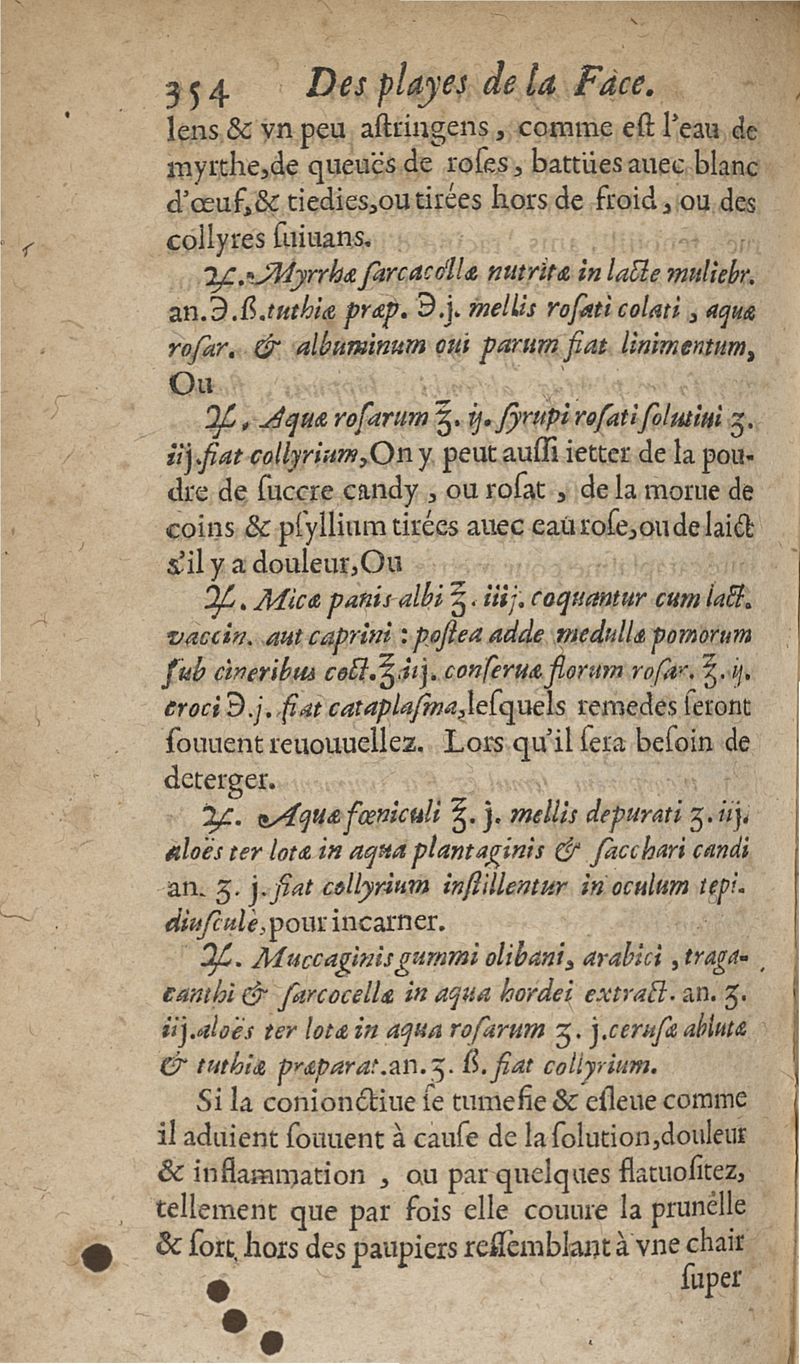 354 Des playes de la Face.
lens & vn peu aſtringens, comme eſt l'eau de
myrthe,de queuës de roſes, battües auec blanc
d'œuf,& tiedies,ou tirées hors de froid, ou des
collyres ſuiuans.
♃. Myrrhæ ſarcacollæ nutritæ in lacte muliebr.
an.℈.ß.tuthiæ præp. ℈.j. mellis roſati colati, aquæ
roſar. & albuminum oui parum fiat linimentum,
Ou
♃. Aquæ roſarum ℥. ij. ſyrupi roſati ſolutiui ʒ.
iij.fiat collyrium,On y peut auſſi ietter de la pou-
dre de ſuccre candy, ou roſat, de la morue de
coins & pſyllium tirées auec eau roſe,ou de laict
s'il y a douleur,Ou
♃. Micæ panis albi ℥. iiij. coquantur cum lact.
vaccin. aut caprini : poſtea adde medullæ pomorum
ſub cineribus coct.℥.iij. conſeruæ florum roſar. ℥. ij.
croci ℈.j. fiat cataplaſma,leſquels remedes ſeront
ſouuent reuouuellez. Lors qu'il ſera beſoin de
deterger.
♃. Aquæ fœniculi ℥. j. mellis depurati ʒ. iij.
aloës ter lotæ in aqua plantaginis & ſacchari candi
an. ʒ. j. fiat collyrium inſtillentur in oculum tepi-
diuſculè,pour incarner.
♃. Muccaginis gummi olibani, arabici, traga-
canthi & ſarcocellæ in aqua hordei extract. an. ʒ.
iij.aloës ter lotæ in aqua roſarum ʒ. j.ceruſæ ablutæ
& tuthiæ præparat.an.ʒ. ß. fiat collyrium.
Si la conionctiue ſe tumefie & eſleue comme
il aduient ſouuent à cauſe de la ſolution,douleur
& inflammation, ou par quelques flatuoſitez,
tellement que par fois elle couure la prunelle
& ſort hors des paupiers reſſemblant à vne chair
ſuper